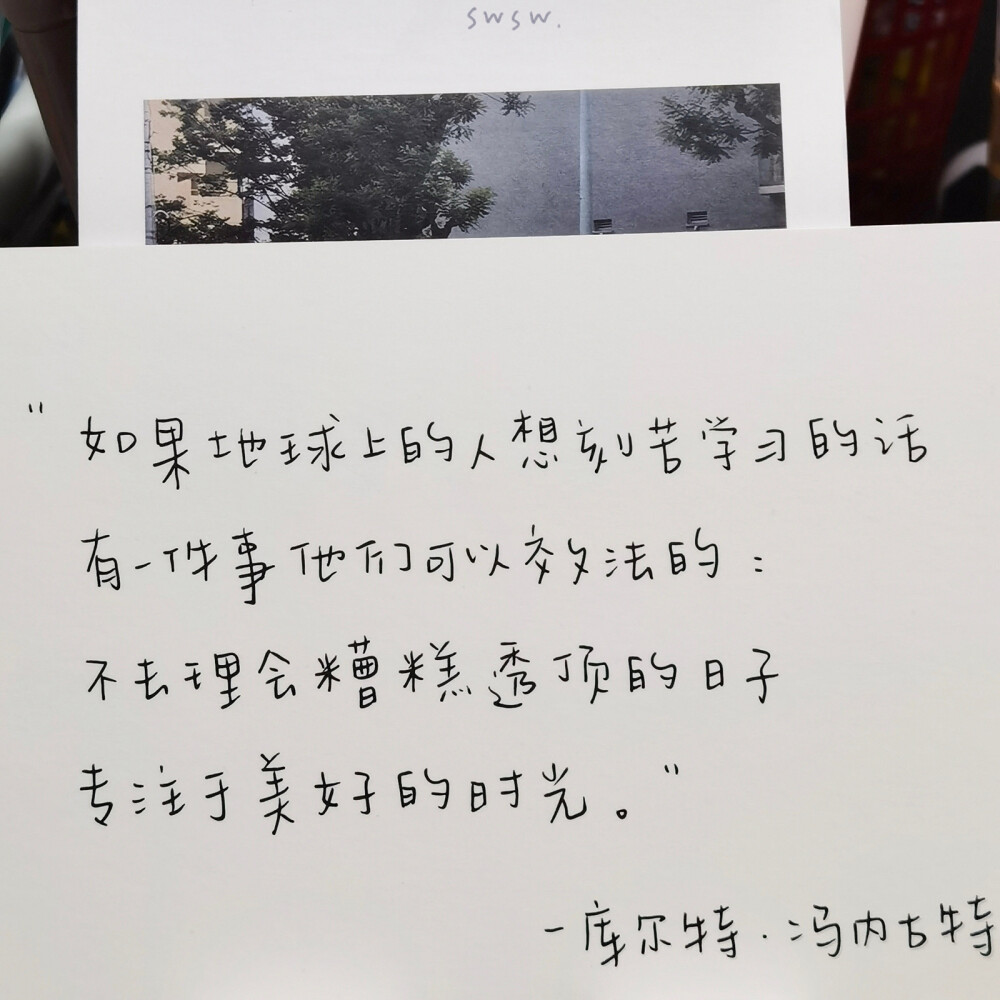 swsw.
"如果地球上的人想刻苦学习的话
有一件事他们可以效法的：
不去理会糟糕透顶的日子
专注于美好的时光。"
-库尔特·冯内古特